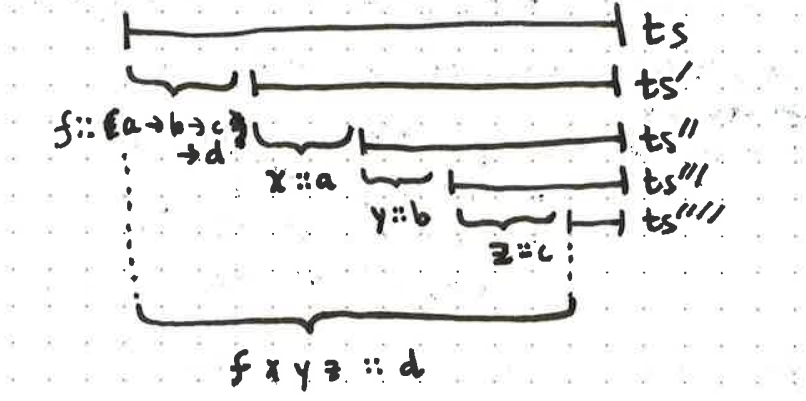 ts
ts′
f :: (a → b → c
→ d)
ts″
x :: a
ts‴
y :: b
ts⁗
z :: c
f x y z :: d